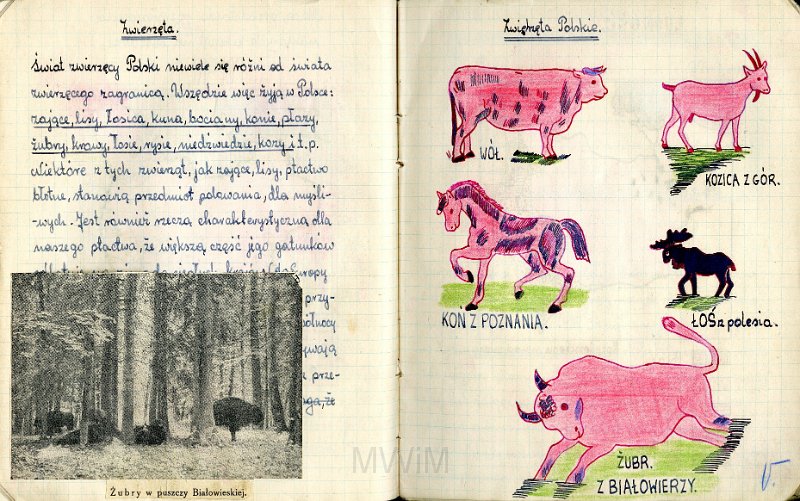 Zwierzęta.
Świat zwierzęcy Polski niewiele się różni od świata
zwierzęcego zagranicą. Wszędzie więc żyją w Polsce:
zające, lisy, łosica, kuna, bociany, konie, płazy,
żubry, krowy, łosie, rysie, niedzwiedzie, kozy i t. p.
Niektóre z tych zwierząt, jak zające, lisy, ptactwo
błotne, stanowią przedmiot polowania, dla myśli-
-wych. Jest również rzeczą charakterystyczną dla
naszego ptactwa, że większą część jego gatunków
Europy
przy-
północy
prze-
że
Żubry w puszczy Białowieskiej.
Zwięrzęta Polskie.
WÓŁ.
KOZICA Z GÓR.
KON Z POZNANIA.
ŁOŚ z polesia.
ŻUBR.
Z BIAŁOWIERZY.
MWiM